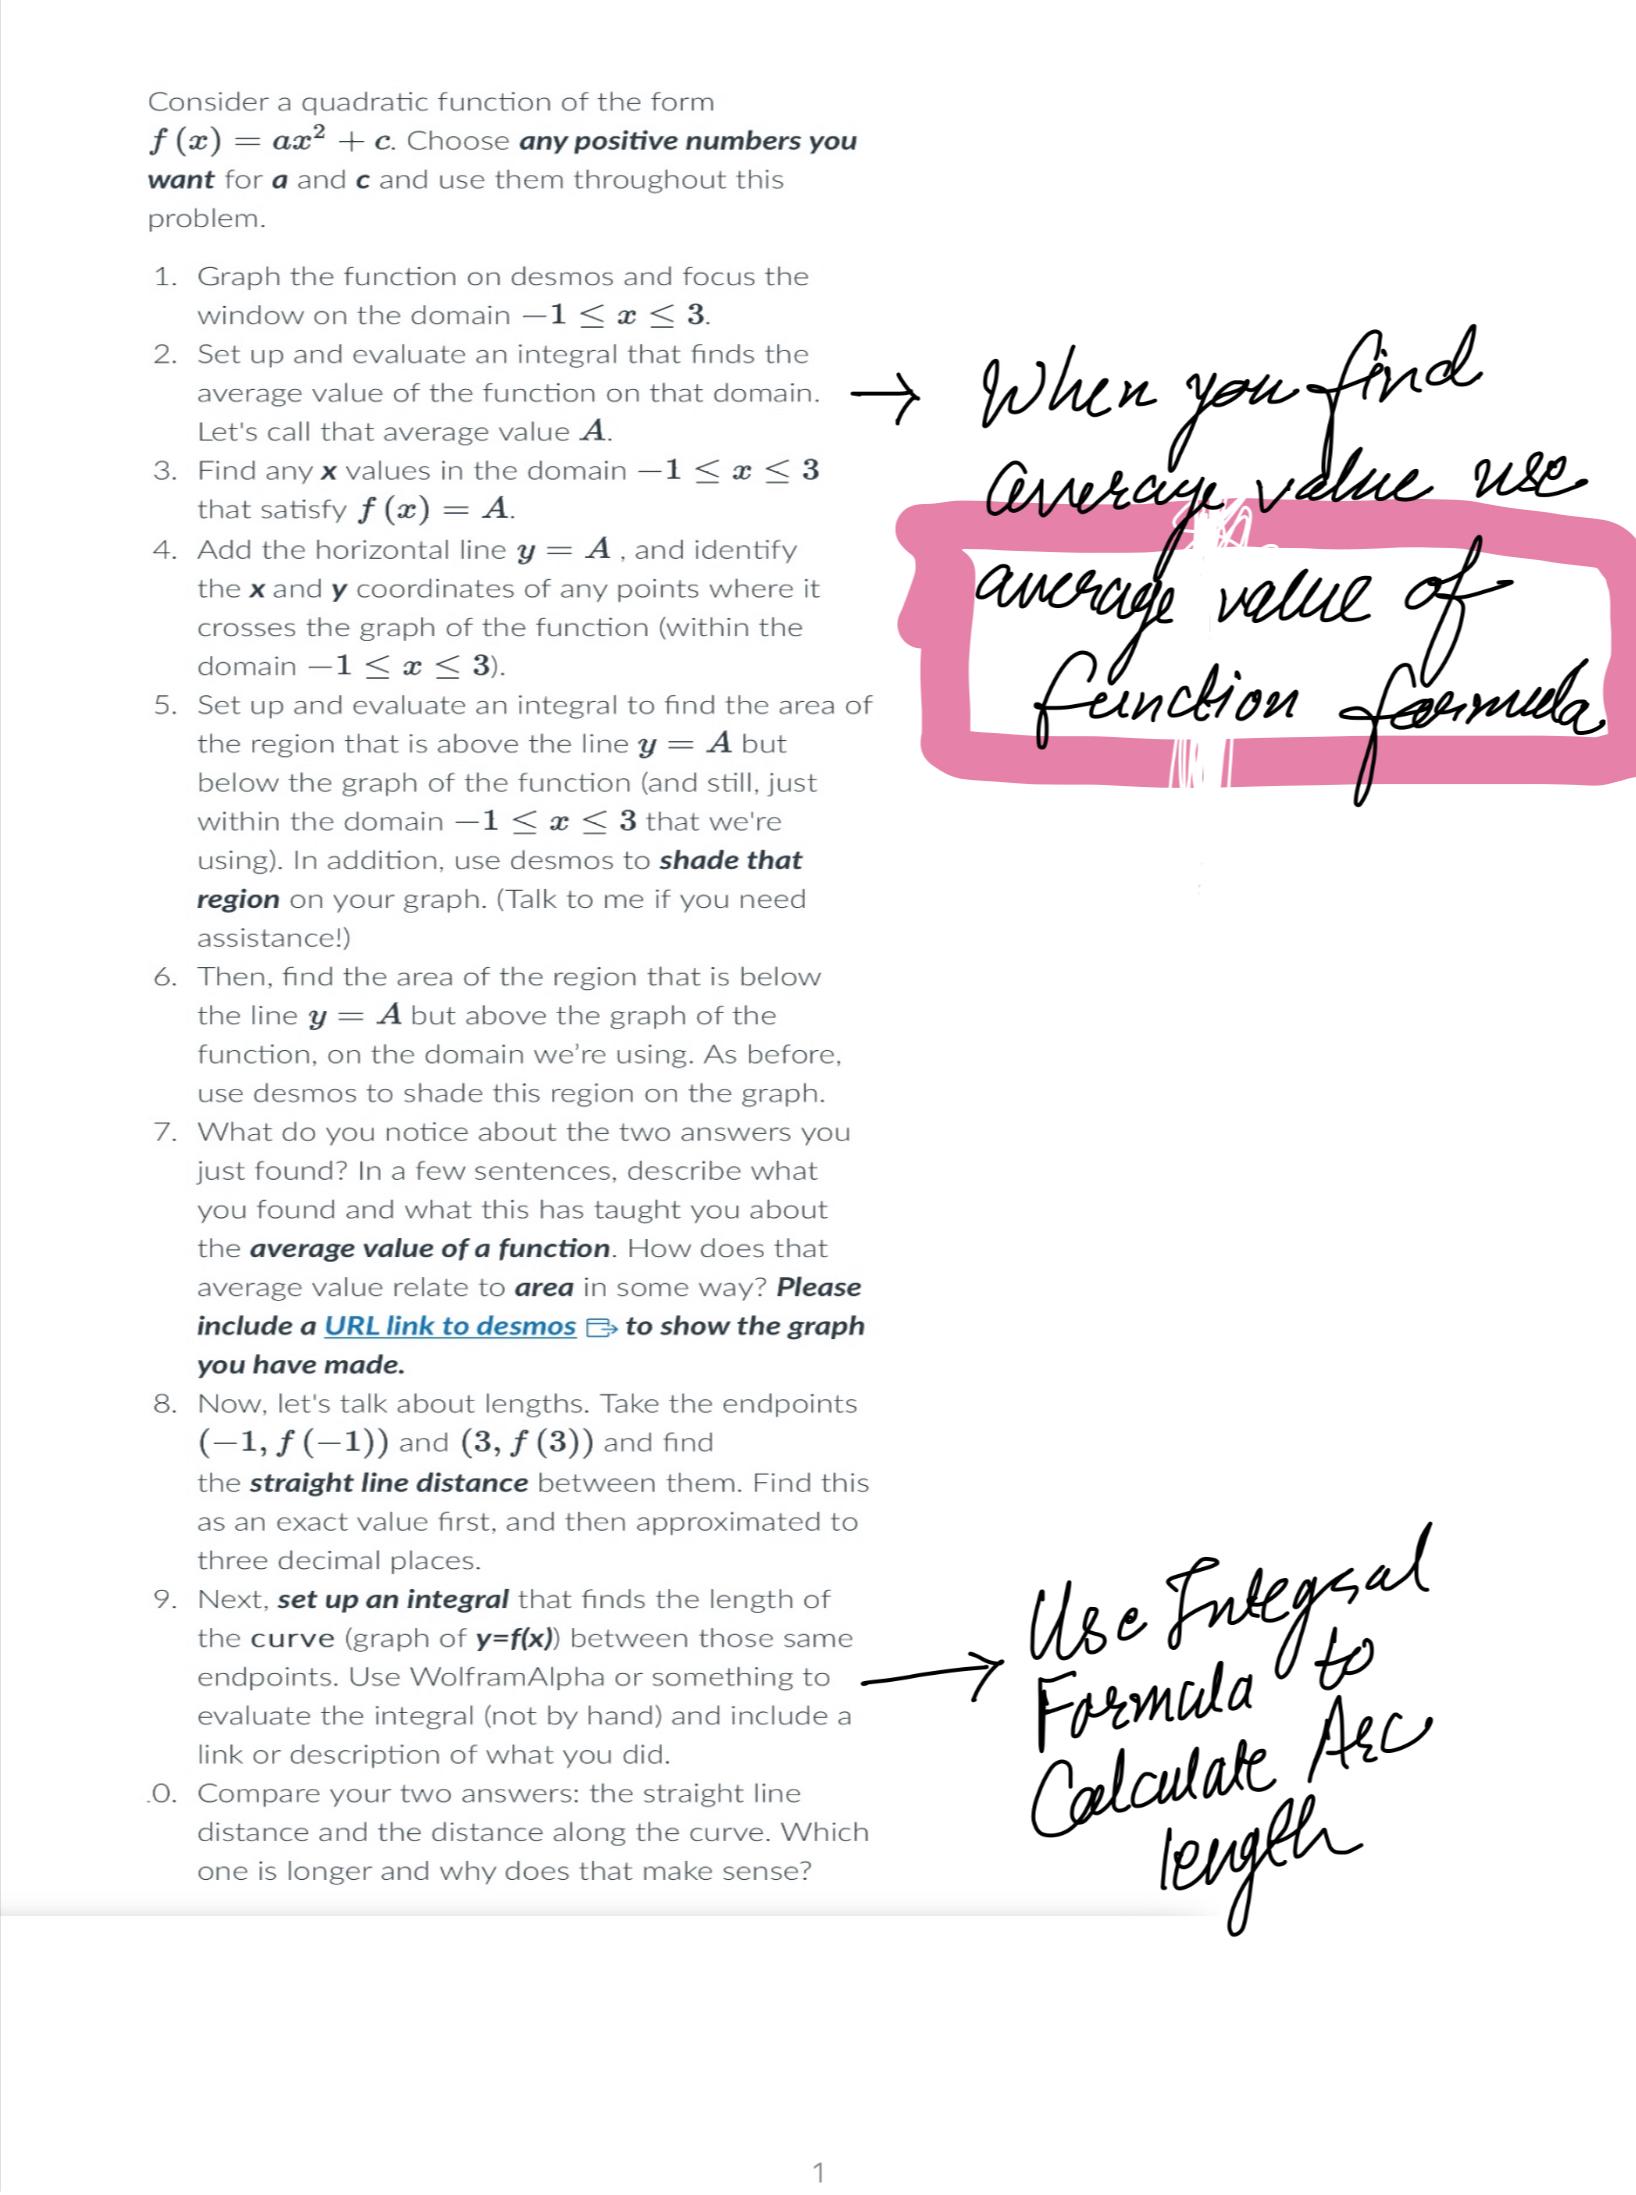 Consider a quadratic function of the form
f (x) = ax² + c. Choose any positive numbers you
want for a and c and use them throughout this
problem.
1. Graph the function on desmos and focus the
window on the domain −1 ≤ x ≤ 3.
2. Set up and evaluate an integral that finds the
average value of the function on that domain.
Let's call that average value A.
→ When you find
average value use
average value of
function formula
3. Find any x values in the domain −1 ≤ x ≤ 3
that satisfy f (x) = A.
4. Add the horizontal line y = A , and identify
the x and y coordinates of any points where it
crosses the graph of the function (within the
domain −1 ≤ x ≤ 3).
5. Set up and evaluate an integral to find the area of
the region that is above the line y = A but
below the graph of the function (and still, just
within the domain −1 ≤ x ≤ 3 that we're
using). In addition, use desmos to shade that
region on your graph. (Talk to me if you need
assistance!)
6. Then, find the area of the region that is below
the line y = A but above the graph of the
function, on the domain we’re using. As before,
use desmos to shade this region on the graph.
7. What do you notice about the two answers you
just found? In a few sentences, describe what
you found and what this has taught you about
the average value of a function. How does that
average value relate to area in some way? Please
include a URL link to desmos to show the graph
you have made.
8. Now, let's talk about lengths. Take the endpoints
(−1, f (−1)) and (3, f (3)) and find
the straight line distance between them. Find this
as an exact value first, and then approximated to
three decimal places.
9. Next, set up an integral that finds the length of
the curve (graph of y=f(x)) between those same
endpoints. Use WolframAlpha or something to
evaluate the integral (not by hand) and include a
link or description of what you did.
→ Use Integral
Formula to
Calculate Arc
length
.0. Compare your two answers: the straight line
distance and the distance along the curve. Which
one is longer and why does that make sense?
1